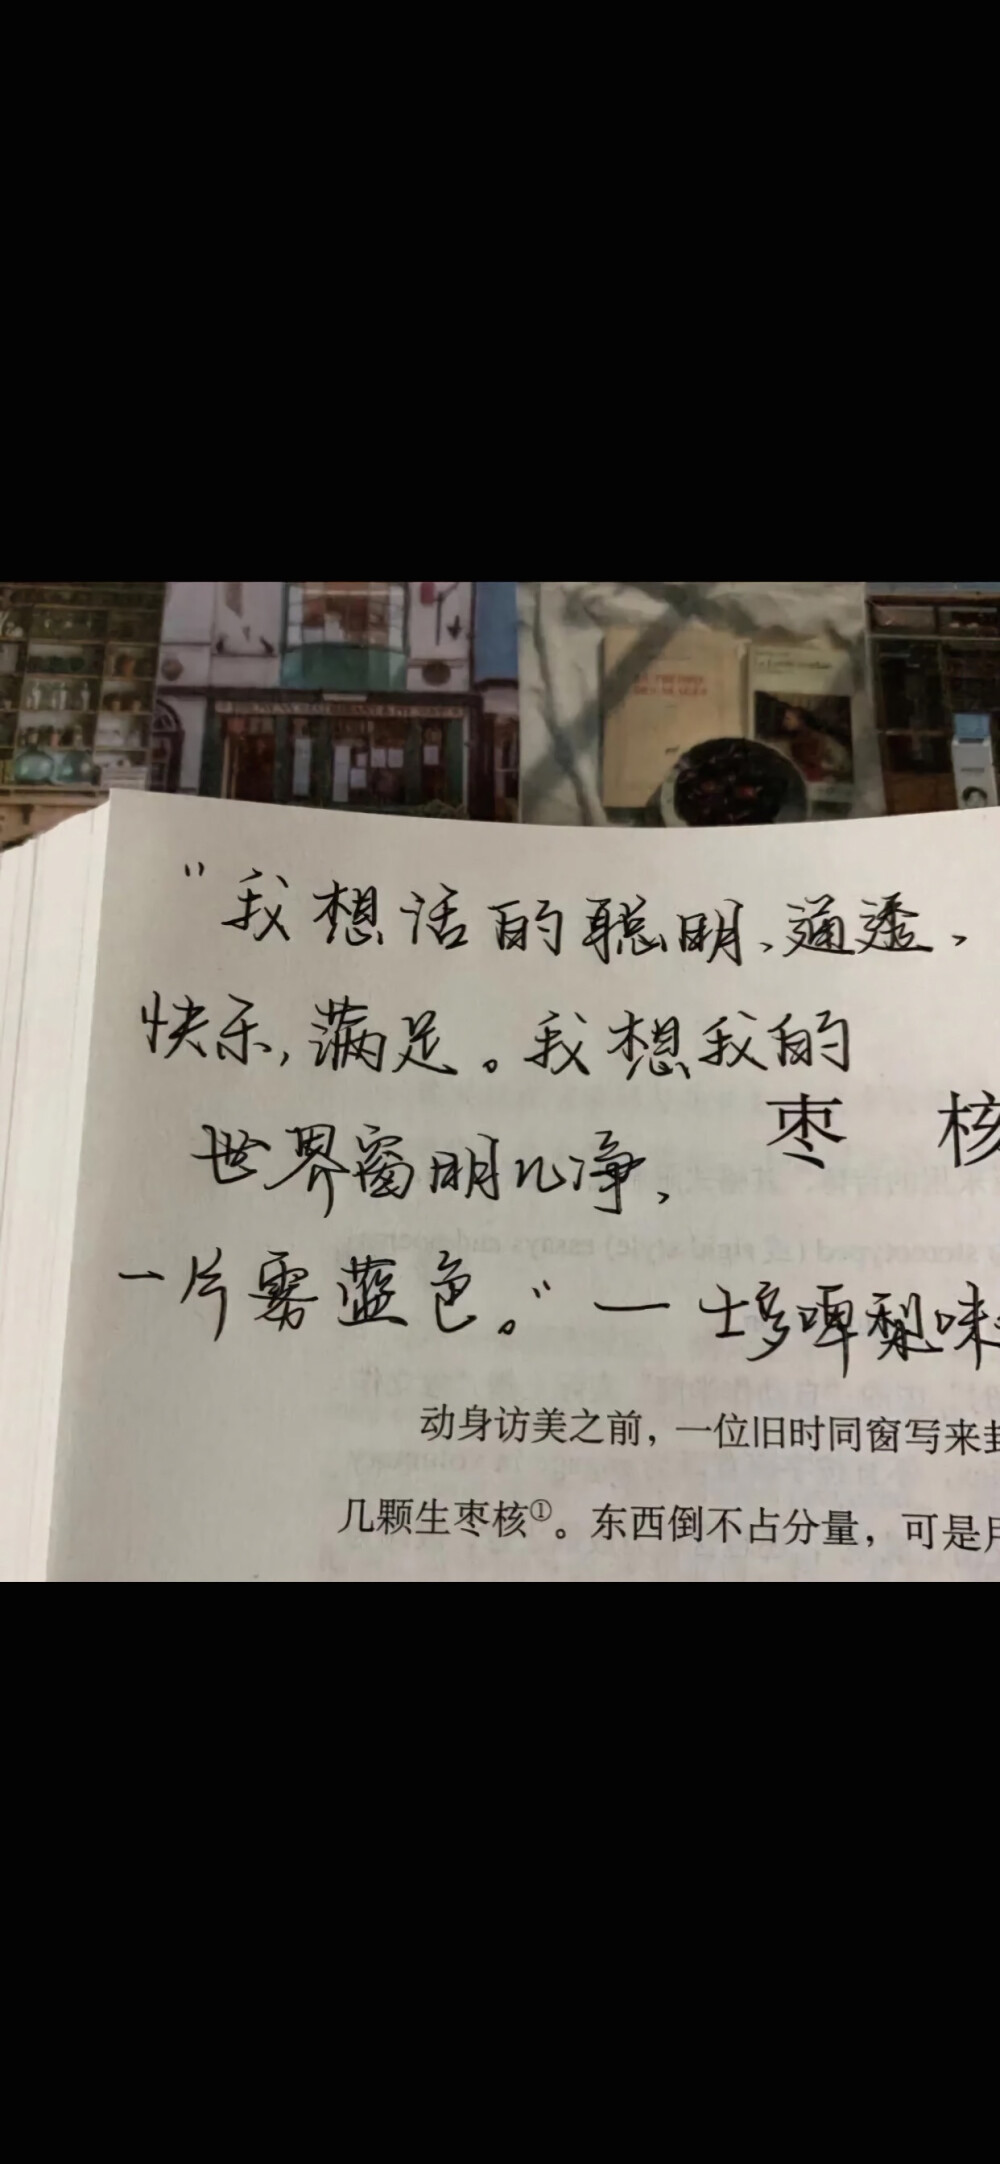 “我想活的聪明、通透、
快乐,满足。我想我的
世界窗明几净,
枣 核
一片雾蓝色。”— 士多啤梨味
动身访美之前,一位旧时同窗写来封
几颗生枣核①。东西倒不占分量,可是用